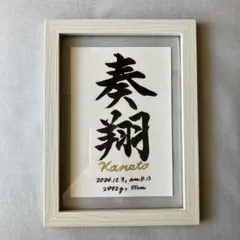 奏翔
Kanato
2020.12.8, am8:13
2992g, 50cm